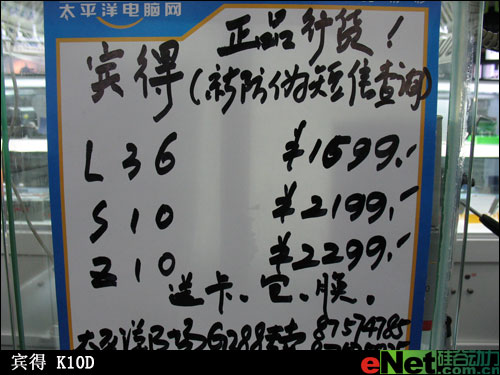 太平洋电脑网
正品行货!
宾得(新防伪短信查询)
L36 ¥1699.-
S10 ¥2199.-
Z10 ¥2299.-
送卡、包、膜。
太平洋 6288 87574785
宾得 K10D
eNet硅谷动力